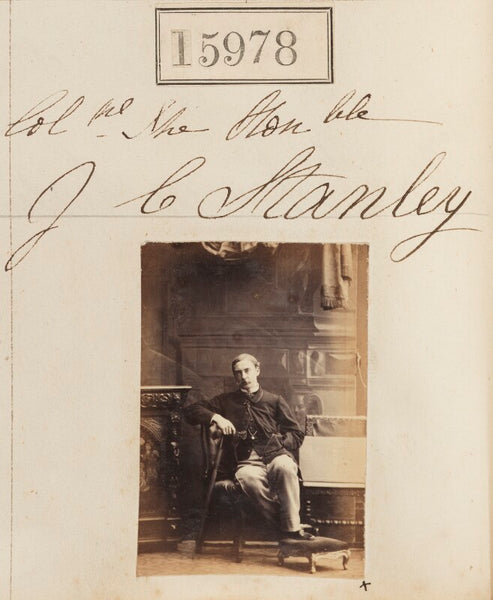 15978
Colnel The Honble
J C Stanley
x